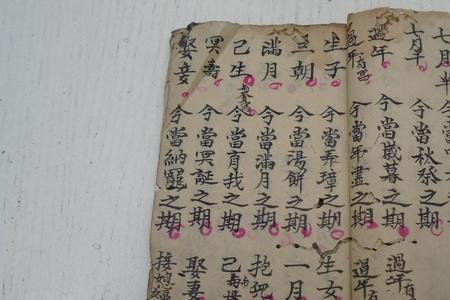 七月半
七月半 今當秋祭之期
過年 今當歲暮之期 過年有
過年有 今當年盡之期 過年
生子 今當弄璋之期 生女
三朝 今當湯餅之期 一月
滿月 今當滿月之期 抱
己生 今當育我之期 己
冥壽 今當冥誕之期 娶妻
娶妾 今當納寵之期 接